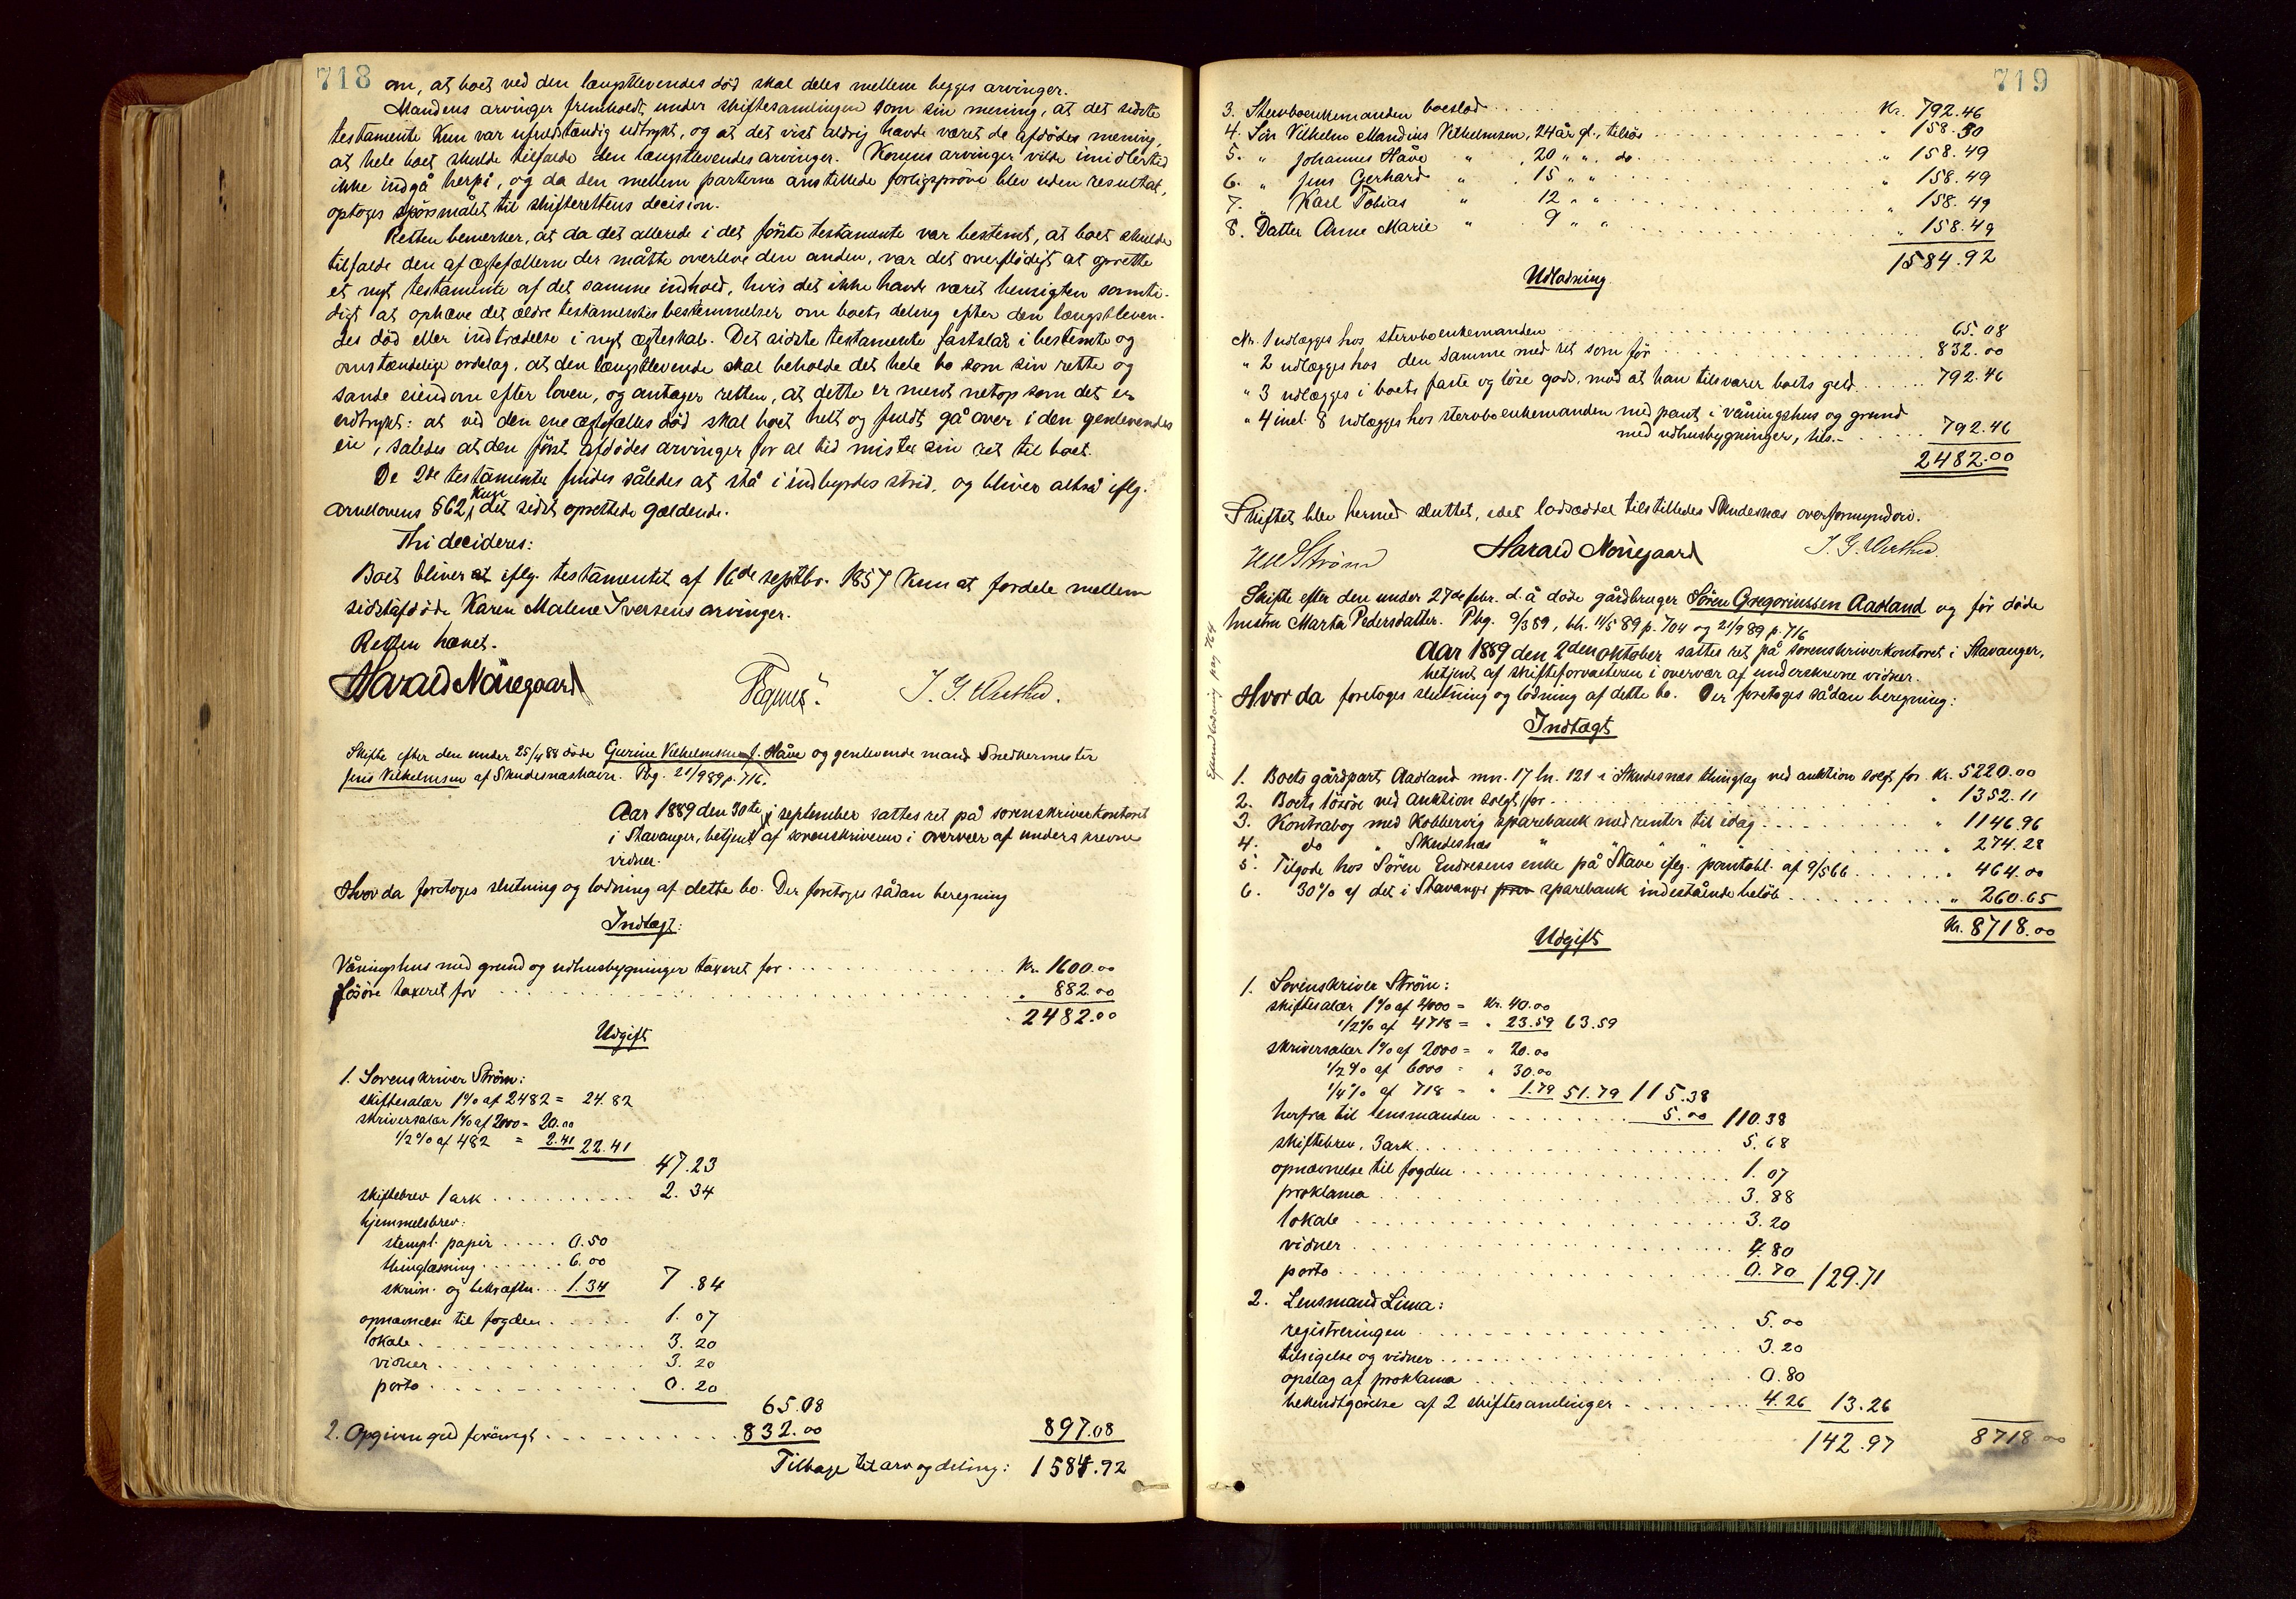 718
om, at boet ved den længstlevendes død skal deles mellem begges arvinger.
Mandens arvinger fremholdt under skiftesamlingen som sin mening, at det sidste
testamente kun var ufuldstændig udtrykt, og at det vist aldrig havde været de afdødes mening,
at hele boet skulde tilfalde den længstlevendes arvinger. Konens arvinger vilde imidlertid
ikke indgå herpå, og da den mellem parterne anstillede forligsprøve blev uden resultat,
optoges spørsmålet til skifterettens decision.
Retten bemerker, at da det allerede i det første testamente var bestemt, at boet skulde
tilfalde den af ægtefællerne der måtte overleve den anden, var det overflødigt at oprette
et nyt testamente af det samme indhold, hvis det ikke havde været hensigten samti-
digt at ophæve det ældre testamentes bestemmelser om boets deling efter den længstleven-
des død eller indtrædelse i nyt ægteskab. Det sidste testamente fastslår i bestemte og
omstændelige ordelag, at den længstlevende skal beholde det hele bo som sin rette og
sande eiendom efter loven, og antager retten, at dette er ment netop som det er
udtrykt: at ved den ene ægtefælles død skal boet helt og fuldt gå over i den genlevendes
eie, således at den først afdødes arvinger for al tid mister sin ret til boet.
De 2de testamenter findes således at stå i indbyrdes strid, og bliver altså iflg.
arvelovens § 62 kun det sidst oprettede gældende.
Thi decideres:
Boet bliver at iflg. testamentet af 16de septbr. 1857 kun at fordele mellem
sidstafdøde Karen Malene Iversens arvinger.
Retten hævet.
Harald Nörregaard J. G.
Skifte efter den under 25/4 88 døde Gurine Vilhelmsen f. Håve og genlevende mand Snedkermester
Jens Vilhelmsen af Skudesnæshavn. Pbg. 21/9 89 p. 716.
Aar 1889 den 30te september sattes ret på sorenskriverkontoret
i Stavanger, betjent af sorenskriveren i overvær af underskrevne
vidner.
Hvor da foretoges slutning og lodning af dette bo. Der foretoges sådan beregning
Indtægt:
Våningshus med grund og udhusbygninger taxeret for . . . Kr. 1600.00
Løsøre taxeret for . . . " 882.00
2482.00
Udgift
1. Sorenskriver Strøm:
skiftesalær 1% af 2482 = 24.82
skriversalær 1% af 2000 = 20.00
1/2% af 482 = 2.41 22.41
47.23
skiftebrev 1 ark . . . 2.34
hjemmelsbrev:
stempl. papir . . . 0.50
thinglæsning . . . 6.00
skrivn. og bekræftn. . . 1.34 7.84
opnævnelse til fogden . . . 1.07
lokale . . . 3.20
vidner . . . 3.20
porto . . . 0.20
65.08
2. Opgiven gjeld forøvrigt . . . 832.00 897.08
Tilbage til arv og deling: 1584.92
719
3. Stervboenkemanden boeslod . . . Kr. 792.46
4. Søn Vilhelm Mandius Vilhelmsen, 24 år gl., tilsv . . . " 158.50
5. " Johannes Håve " , 20 " " . do. . . . " 158.49
6. " Jens Gerhard " , 15 " " . . . " 158.49
7. " Karl Tobias " 12 " " . . . " 158.49
8. Datter Anne Marie " 9 " " . . . " 158.49
1584.92
Udlodning
Nr. 1 udlægges hos stervboenkemanden . . . 65.08
" 2 udlægges hos den samme med ret som før . . . 832.00
" 3 udlægges i boets faste og løse gods, mod at han tilsvarer boets geld . . . 792.46
" 4 incl. 8 udlægges hos stervboenkemanden med pant i våningshus og grund
med udhusbygninger, tils. . . . 792.46
2482.00
Skiftet blev hermed sluttet, idet lodseddel tilstilledes Skudesnæs overformynderi.
Strøm Harald Nörregaard J. G.
Skifte efter den under 27de febr. d.å døde gårdbruger Søren Gregoriussen Aadland og før døde
hustru Marta Pedersdatter. Pbg. 9/3 89, bh. 11/5 89 p. 704 og 21/9 89 p. 716
Aar 1889 den 2den oktober sattes ret på sorenskriverkontoret i Stavanger,
betjent af skifteforvalteren i overvær af underskrevne vidner.
Hvor da foretoges slutning og lodning af dette bo. Der foretoges sådan beregning:
Indtægt
1. Boets gårdpart Aadland mn. 17 ln. 121 i Skudesnæs thinglag ved auktion solgt for Kr. 5220.00
2. Boets løsøre ved auktion solgt for . . . " 1352.11
3. Kontrabog med Kobbervig sparebank med renter til idag . . . " 1146.96
4. do " Skudesnæs " " " " " 274.28
5. Tilgode hos Søren Endresens enke på Stave iflg. pantobl. af 9/5 66 . . . " 464.00
6. 30% af det i Stavanger sparebank indestående beløb . . . " 260.65
Kr. 8718.00
Udgift
1. Sorenskriver Strøm:
skiftesalær 1% af 4000 = Kr. 40.00
1/2% af 4718 = " 23.59 63.59
skriversalær 1% af 2000 = " 20.00
1/2% af 6000 = " 30.00
1/4% af 718 = " 1.79 51.79 115.38
herfra til lensmanden . . . 5.00 110.38
skiftebrev, 3 ark . . . 5.68
opnævnelse til fogden . . . 1.07
proklama . . . 3.88
lokale . . . 3.20
vidner . . . 4.80
porto . . . 0.70 129.71
2. Lensmand Lima:
registreringen . . . 5.00
tilsigelse og vidner . . . 3.20
opslag af proklama . . . 0.80
bekendtgørelse af 2 skiftesamlinger . . . 4.26 13.26
142.97 8718.00
pag 764